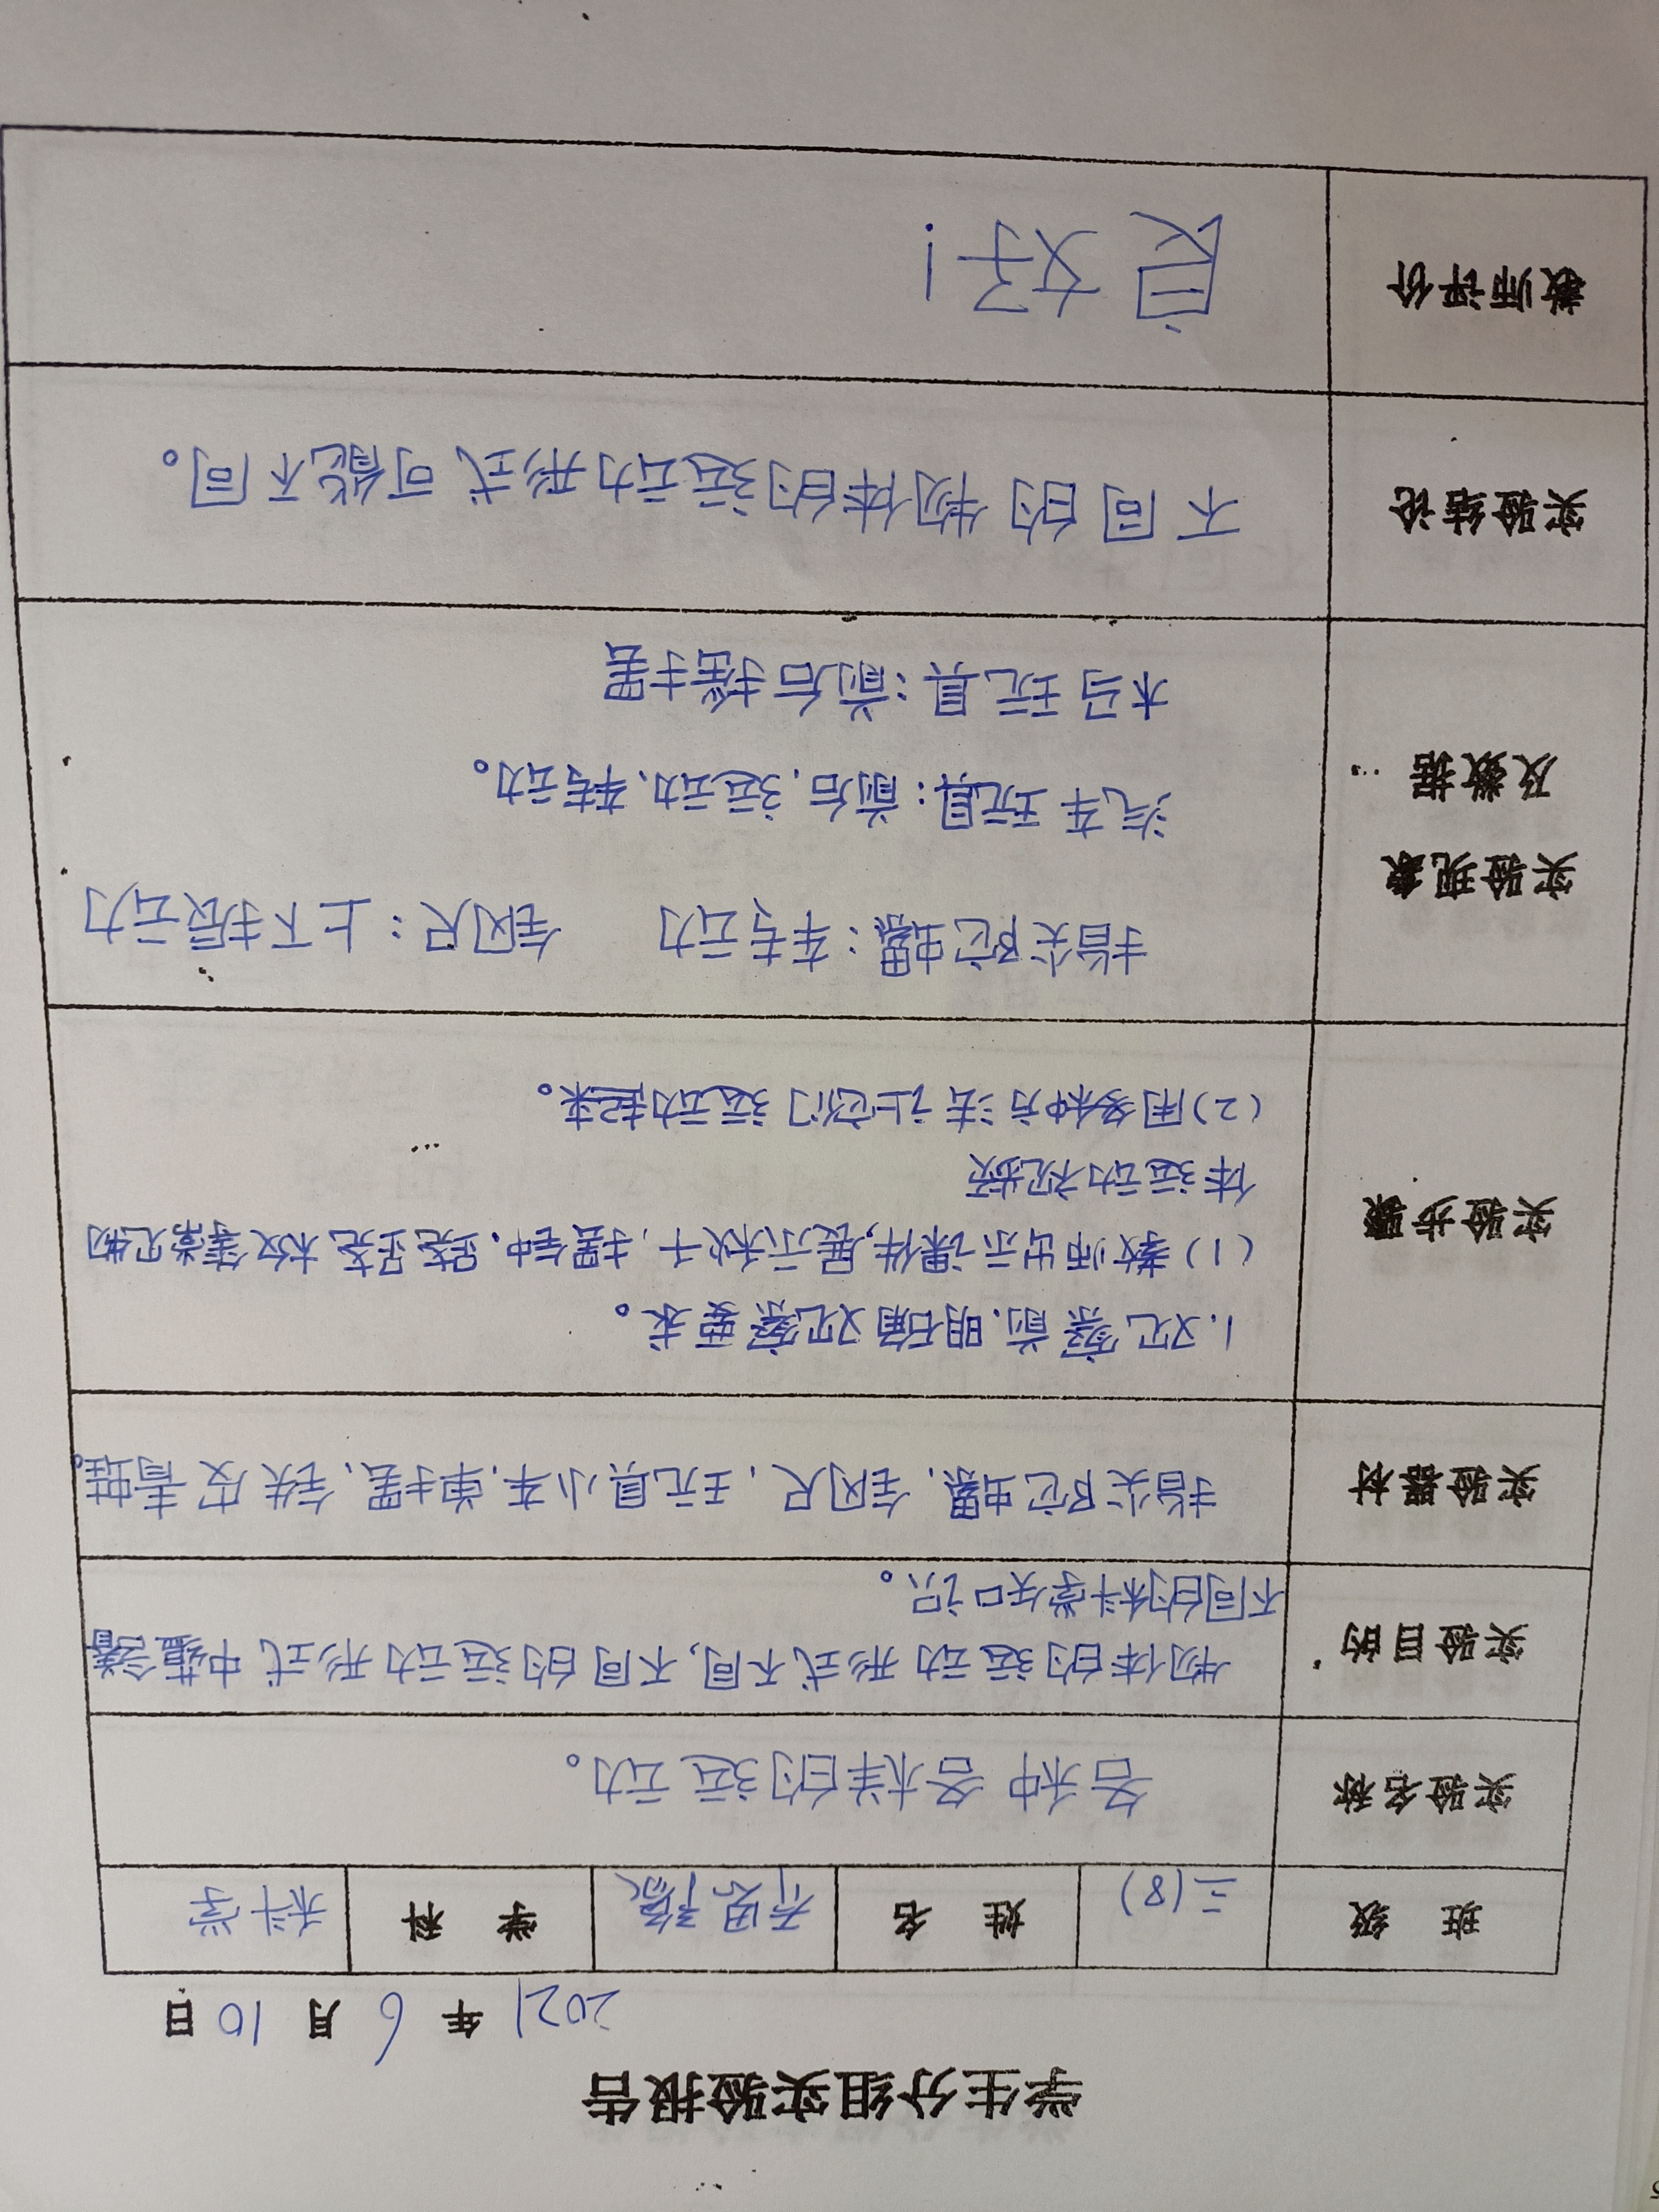 学生分组实验报告
2021年6月10日
班级 三(8) 姓名 学科 科学
实验名称 各种各样的运动。
实验目的 物体的运动形式不同,不同的运动形式中蕴含着
不同的科学知识。
实验器材 指尖陀螺、钢尺、玩具小车、单摆、铁皮青蛙。
实验步骤 1.观察前.明确观察要求。
(1)教师出示课件,展示秋千、摆钟、跷跷板等常见物
体运动视频
(2)用多种方法让它们运动起来。
实验现象 指尖陀螺:转动 钢尺:上下振动
及数据 汽车玩具:前后、运动、转动。
木马玩具:前后摇摆
实验结论 不同的物体的运动形式可能不同。
教师评价 良好!